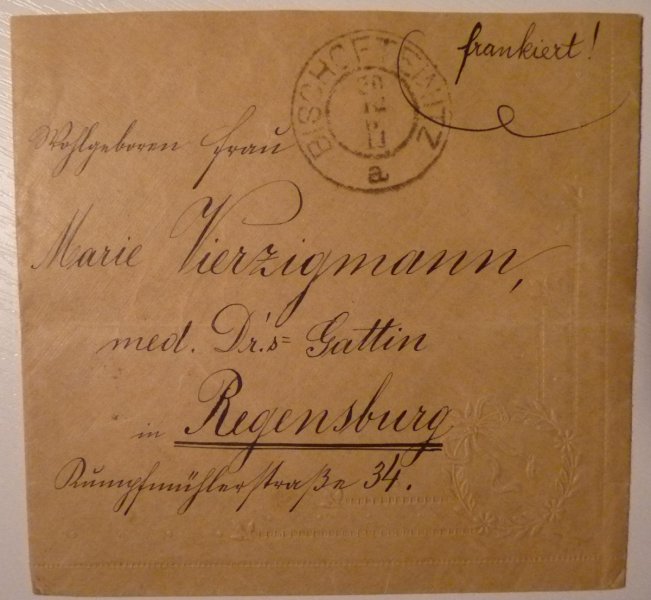 frankiert!
BISCHOFTEINITZ
a
Wohlgeboren Frau
Marie Vierzigmann,
med. Dr.s= Gattin
in Regensburg
Kumpfmühlerstraße 34.